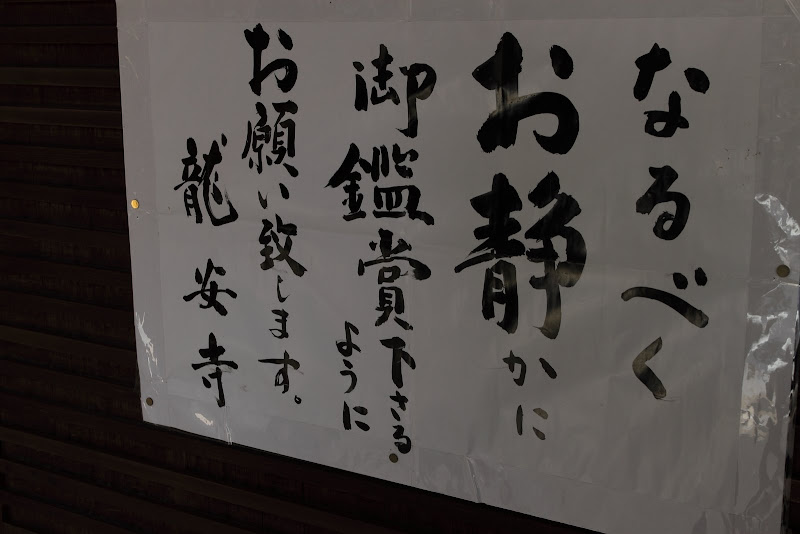 なるべく
お静かに
御鑑賞下さる
ように
お願い致します。
龍安寺